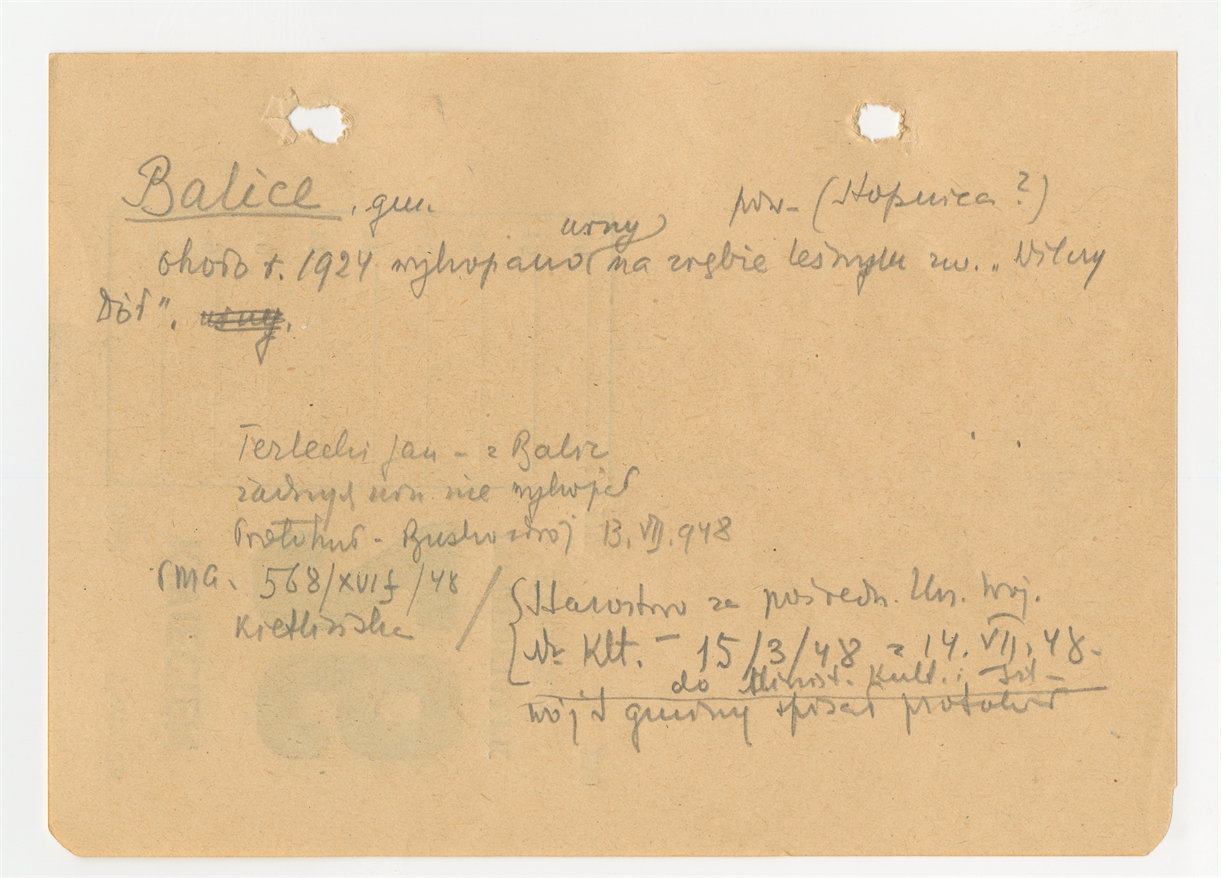 Balice, gm. pow. (Stopnica?)
około r. 1924 wykopano urny na zrębie leśnym zw. „Wilczy
Dół".
Terlecki Jan – z Balic
żadnych urn nie wykopał
Protokuł – Busko zdrój 13.VII.948
PMA. 568/XVIf/48
Kietlińska
Starostwo za pośredn. Urz. Woj.
Nr Klt. – 15/3/48 z 14.VII.48.
do Minist. Kult. i Szt –
wójt gminy spisał protokuł